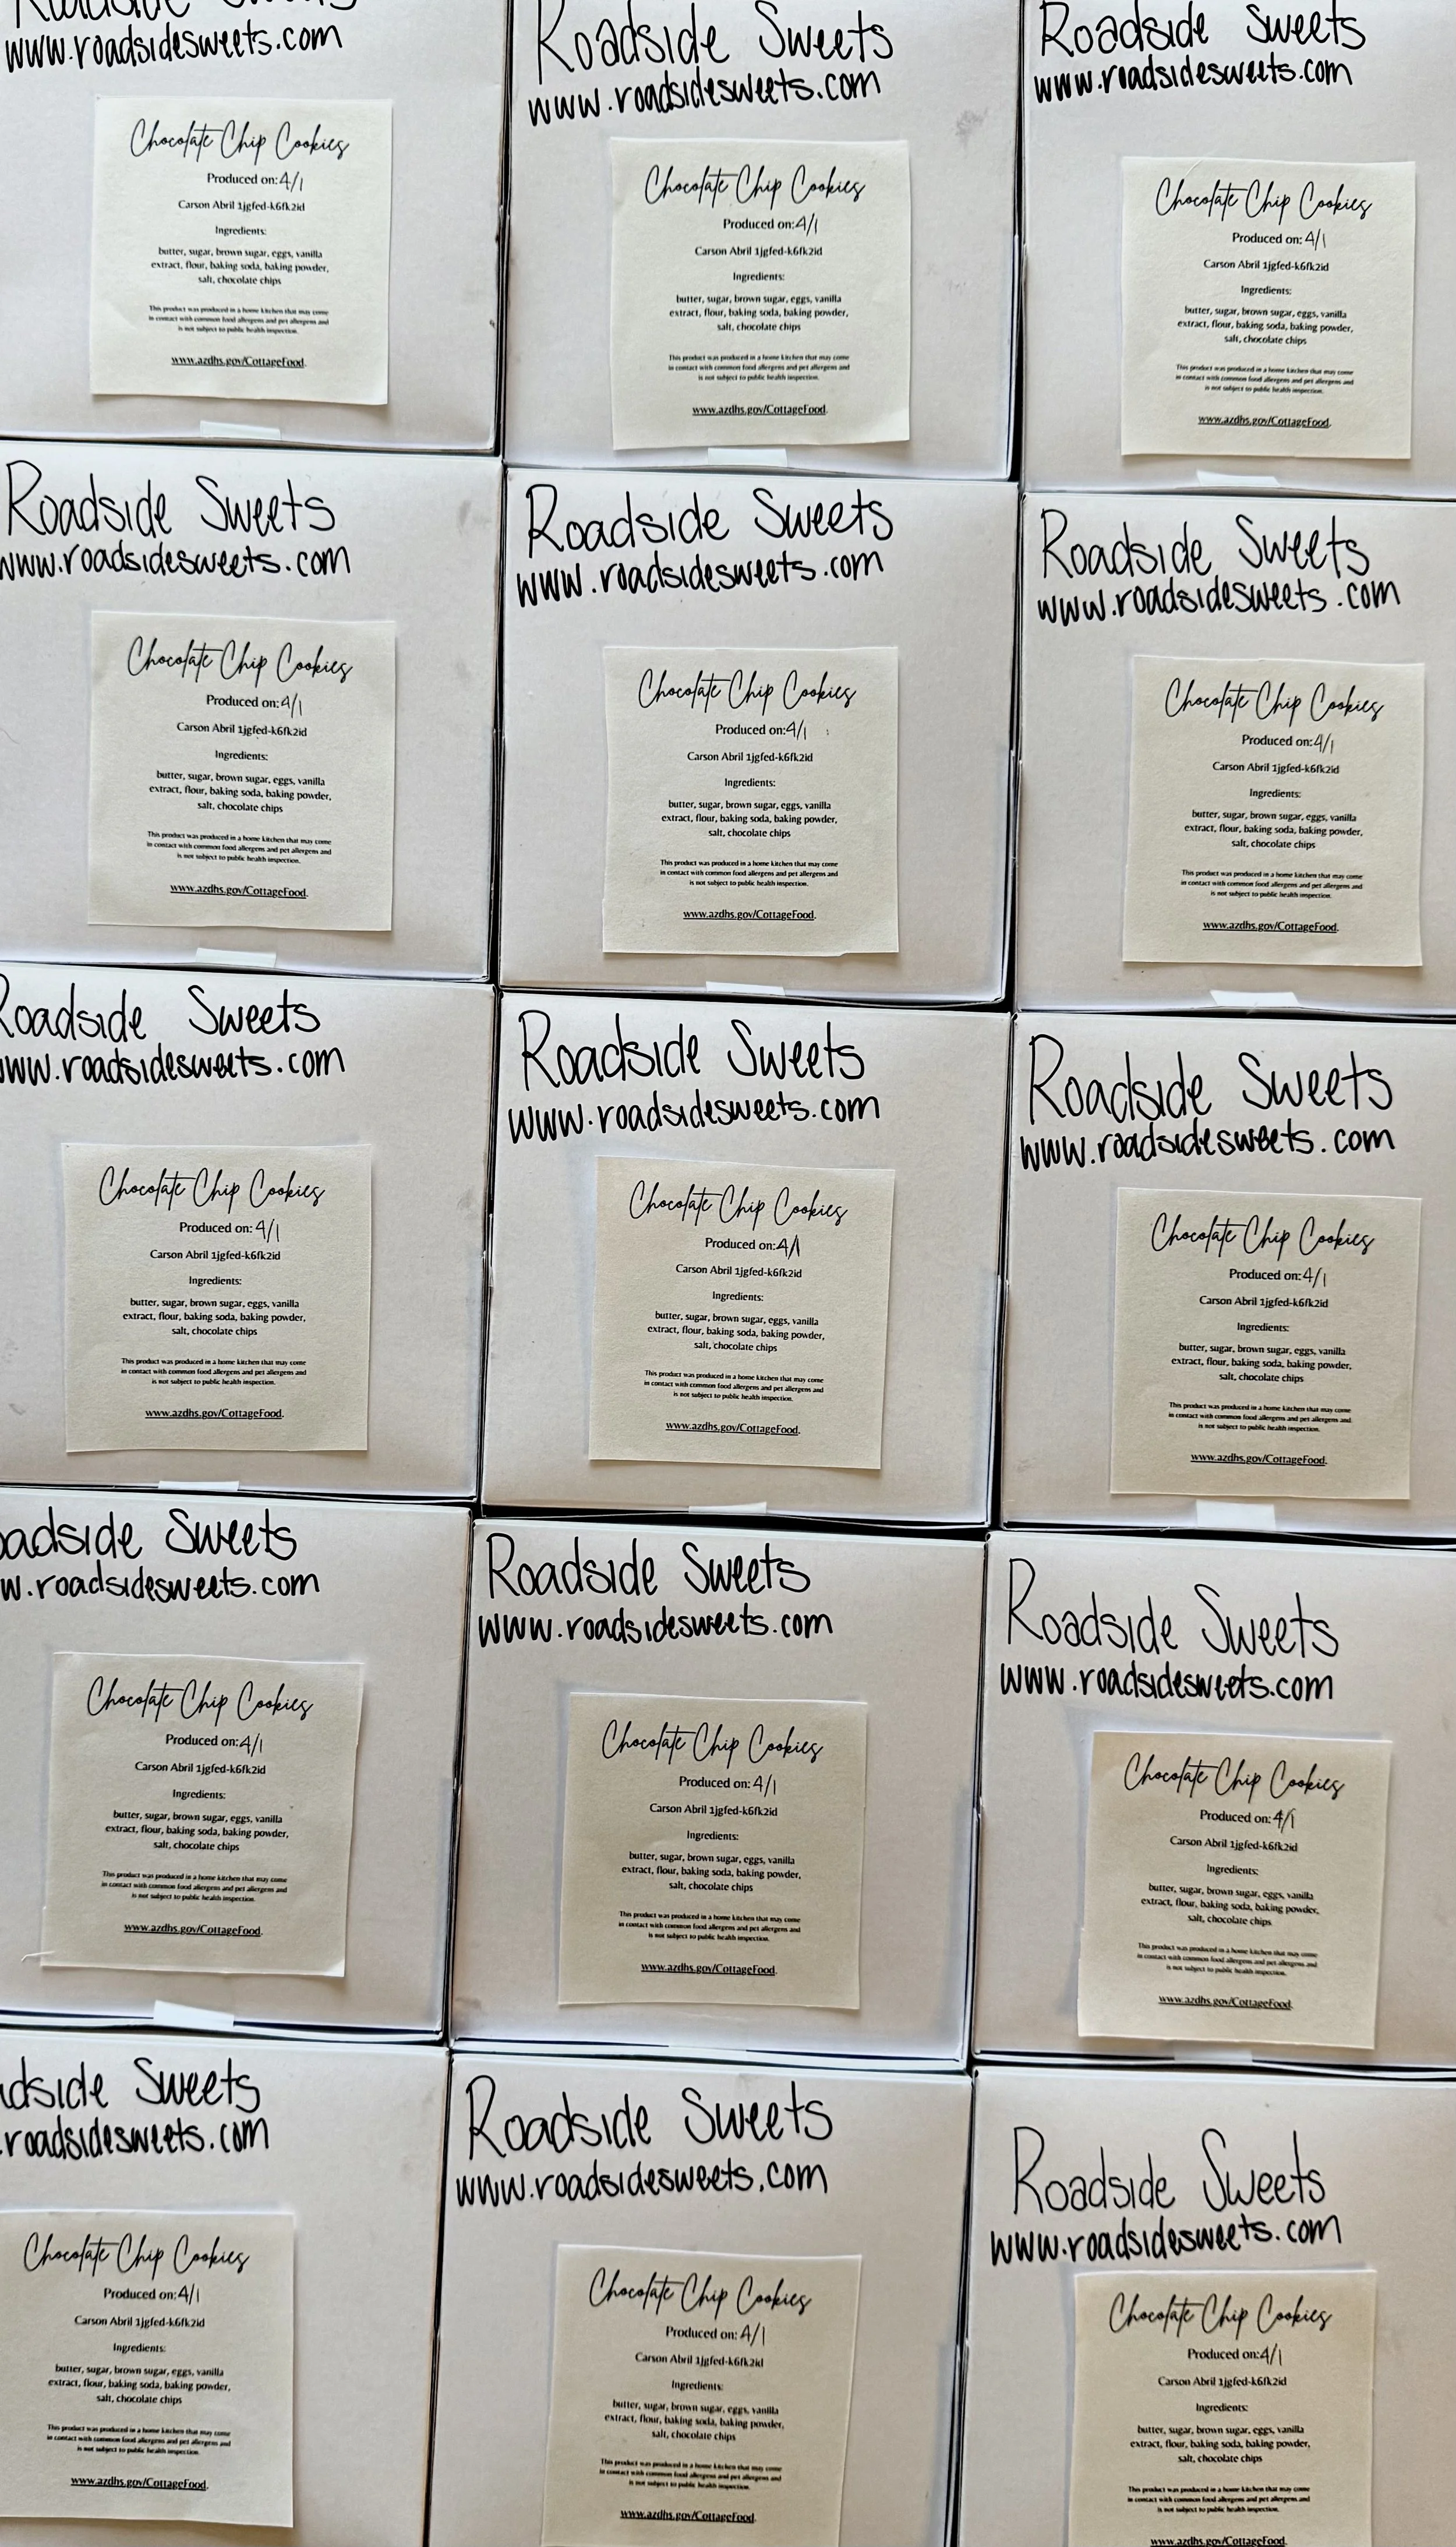 Roadside Sweets
www.roadsidesweets.com
Chocolate Chip Cookies
Produced on: 4/1
Carson Abril 1jgfed-k6fk2id
Ingredients:
butter, sugar, brown sugar, eggs, vanilla
extract, flour, baking soda, baking powder,
salt, chocolate chips
This product was produced in a home kitchen that may come
in contact with common food allergens and pet allergens and
is not subject to public health inspection.
www.azdhs.gov/CottageFood.
Roadside Sweets
www.roadsidesweets.com
Chocolate Chip Cookies
Produced on: 4/1
Carson Abril 1jgfed-k6fk2id
Ingredients:
butter, sugar, brown sugar, eggs, vanilla
extract, flour, baking soda, baking powder,
salt, chocolate chips
This product was produced in a home kitchen that may come
in contact with common food allergens and pet allergens and
is not subject to public health inspection.
www.azdhs.gov/CottageFood.
Roadside Sweets
www.roadsidesweets.com
Chocolate Chip Cookies
Produced on: 4/1
Carson Abril 1jgfed-k6fk2id
Ingredients:
butter, sugar, brown sugar, eggs, vanilla
extract, flour, baking soda, baking powder,
salt, chocolate chips
This product was produced in a home kitchen that may come
in contact with common food allergens and pet allergens and
is not subject to public health inspection.
www.azdhs.gov/CottageFood.
Roadside Sweets
www.roadsidesweets.com
Chocolate Chip Cookies
Produced on: 4/1
Carson Abril 1jgfed-k6fk2id
Ingredients:
butter, sugar, brown sugar, eggs, vanilla
extract, flour, baking soda, baking powder,
salt, chocolate chips
This product was produced in a home kitchen that may come
in contact with common food allergens and pet allergens and
is not subject to public health inspection.
www.azdhs.gov/CottageFood.
Roadside Sweets
www.roadsidesweets.com
Chocolate Chip Cookies
Produced on: 4/1
Carson Abril 1jgfed-k6fk2id
Ingredients:
butter, sugar, brown sugar, eggs, vanilla
extract, flour, baking soda, baking powder,
salt, chocolate chips
This product was produced in a home kitchen that may come
in contact with common food allergens and pet allergens and
is not subject to public health inspection.
www.azdhs.gov/CottageFood.
Roadside Sweets
www.roadsidesweets.com
Chocolate Chip Cookies
Produced on: 4/1
Carson Abril 1jgfed-k6fk2id
Ingredients:
butter, sugar, brown sugar, eggs, vanilla
extract, flour, baking soda, baking powder,
salt, chocolate chips
This product was produced in a home kitchen that may come
in contact with common food allergens and pet allergens and
is not subject to public health inspection.
www.azdhs.gov/CottageFood.
Roadside Sweets
www.roadsidesweets.com
Chocolate Chip Cookies
Produced on: 4/1
Carson Abril 1jgfed-k6fk2id
Ingredients:
butter, sugar, brown sugar, eggs, vanilla
extract, flour, baking soda, baking powder,
salt, chocolate chips
This product was produced in a home kitchen that may come
in contact with common food allergens and pet allergens and
is not subject to public health inspection.
www.azdhs.gov/CottageFood.
Roadside Sweets
www.roadsidesweets.com
Chocolate Chip Cookies
Produced on: 4/1
Carson Abril 1jgfed-k6fk2id
Ingredients:
butter, sugar, brown sugar, eggs, vanilla
extract, flour, baking soda, baking powder,
salt, chocolate chips
This product was produced in a home kitchen that may come
in contact with common food allergens and pet allergens and
is not subject to public health inspection.
www.azdhs.gov/CottageFood.
Roadside Sweets
www.roadsidesweets.com
Chocolate Chip Cookies
Produced on: 4/1
Carson Abril 1jgfed-k6fk2id
Ingredients:
butter, sugar, brown sugar, eggs, vanilla
extract, flour, baking soda, baking powder,
salt, chocolate chips
This product was produced in a home kitchen that may come
in contact with common food allergens and pet allergens and
is not subject to public health inspection.
www.azdhs.gov/CottageFood.
oadside Sweets
w.roadsidesweets.com
Chocolate Chip Cookies
Produced on: 4/1
Carson Abril 1jgfed-k6fk2id
Ingredients:
butter, sugar, brown sugar, eggs, vanilla
extract, flour, baking soda, baking powder,
salt, chocolate chips
This product was produced in a home kitchen that may come
in contact with common food allergens and pet allergens and
is not subject to public health inspection.
www.azdhs.gov/CottageFood.
Roadside Sweets
www.roadsidesweets.com
Chocolate Chip Cookies
Produced on: 4/1
Carson Abril 1jgfed-k6fk2id
Ingredients:
butter, sugar, brown sugar, eggs, vanilla
extract, flour, baking soda, baking powder,
salt, chocolate chips
This product was produced in a home kitchen that may come
in contact with common food allergens and pet allergens and
is not subject to public health inspection.
www.azdhs.gov/CottageFood.
Roadside Sweets
www.roadsidesweets.com
Chocolate Chip Cookies
Produced on: 4/1
Carson Abril 1jgfed-k6fk2id
Ingredients:
butter, sugar, brown sugar, eggs, vanilla
extract, flour, baking soda, baking powder,
salt, chocolate chips
This product was produced in a home kitchen that may come
in contact with common food allergens and pet allergens and
is not subject to public health inspection.
www.azdhs.gov/CottageFood.
dside Sweets
.roadsidesweets.com
Chocolate Chip Cookies
Produced on: 4/1
Carson Abril 1jgfed-k6fk2id
Ingredients:
butter, sugar, brown sugar, eggs, vanilla
extract, flour, baking soda, baking powder,
salt, chocolate chips
This product was produced in a home kitchen that may come
in contact with common food allergens and pet allergens and
is not subject to public health inspection.
www.azdhs.gov/CottageFood.
Roadside Sweets
www.roadsidesweets.com
Chocolate Chip Cookies
Produced on: 4/1
Carson Abril 1jgfed-k6fk2id
Ingredients:
butter, sugar, brown sugar, eggs, vanilla
extract, flour, baking soda, baking powder,
salt, chocolate chips
This product was produced in a home kitchen that may come
in contact with common food allergens and pet allergens and
is not subject to public health inspection.
www.azdhs.gov/CottageFood.
Roadside Sweets
www.roadsidesweets.com
Chocolate Chip Cookies
Produced on: 4/1
Carson Abril 1jgfed-k6fk2id
Ingredients:
butter, sugar, brown sugar, eggs, vanilla
extract, flour, baking soda, baking powder,
salt, chocolate chips
This product was produced in a home kitchen that may come
in contact with common food allergens and pet allergens and
is not subject to public health inspection.
www.azdhs.gov/CottageFood.